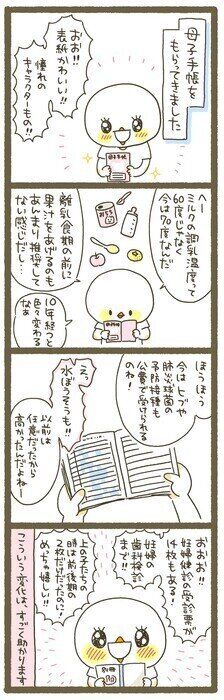 母子手帳を
もらってきました
おお!!
表紙かわいい!!
憧れの
キャラクターもの!!
母子手帳
へー
ミルクの調乳温度って
60度じゃなく
今は70度なんだ
離乳食期の前に
果汁をあげるのも
あんまり推奨して
ない感じだし…
10年経つと
色々変わる
なぁ
ほうほう
今はヒブや
肺炎球菌の
予防接種も
公費で受けられる
のね!
えっ
水ぼうそうも!!
以前は
任意だったから
高かったんだよねー
おおお!!
妊婦健診の受診票が
14枚もある!
妊婦の
歯科検診
まで!!
上の子たちの
時は前後期の
2枚だけだったのに!
めっちゃ嬉しい!!
別冊
こういう変化は、すごく助かります